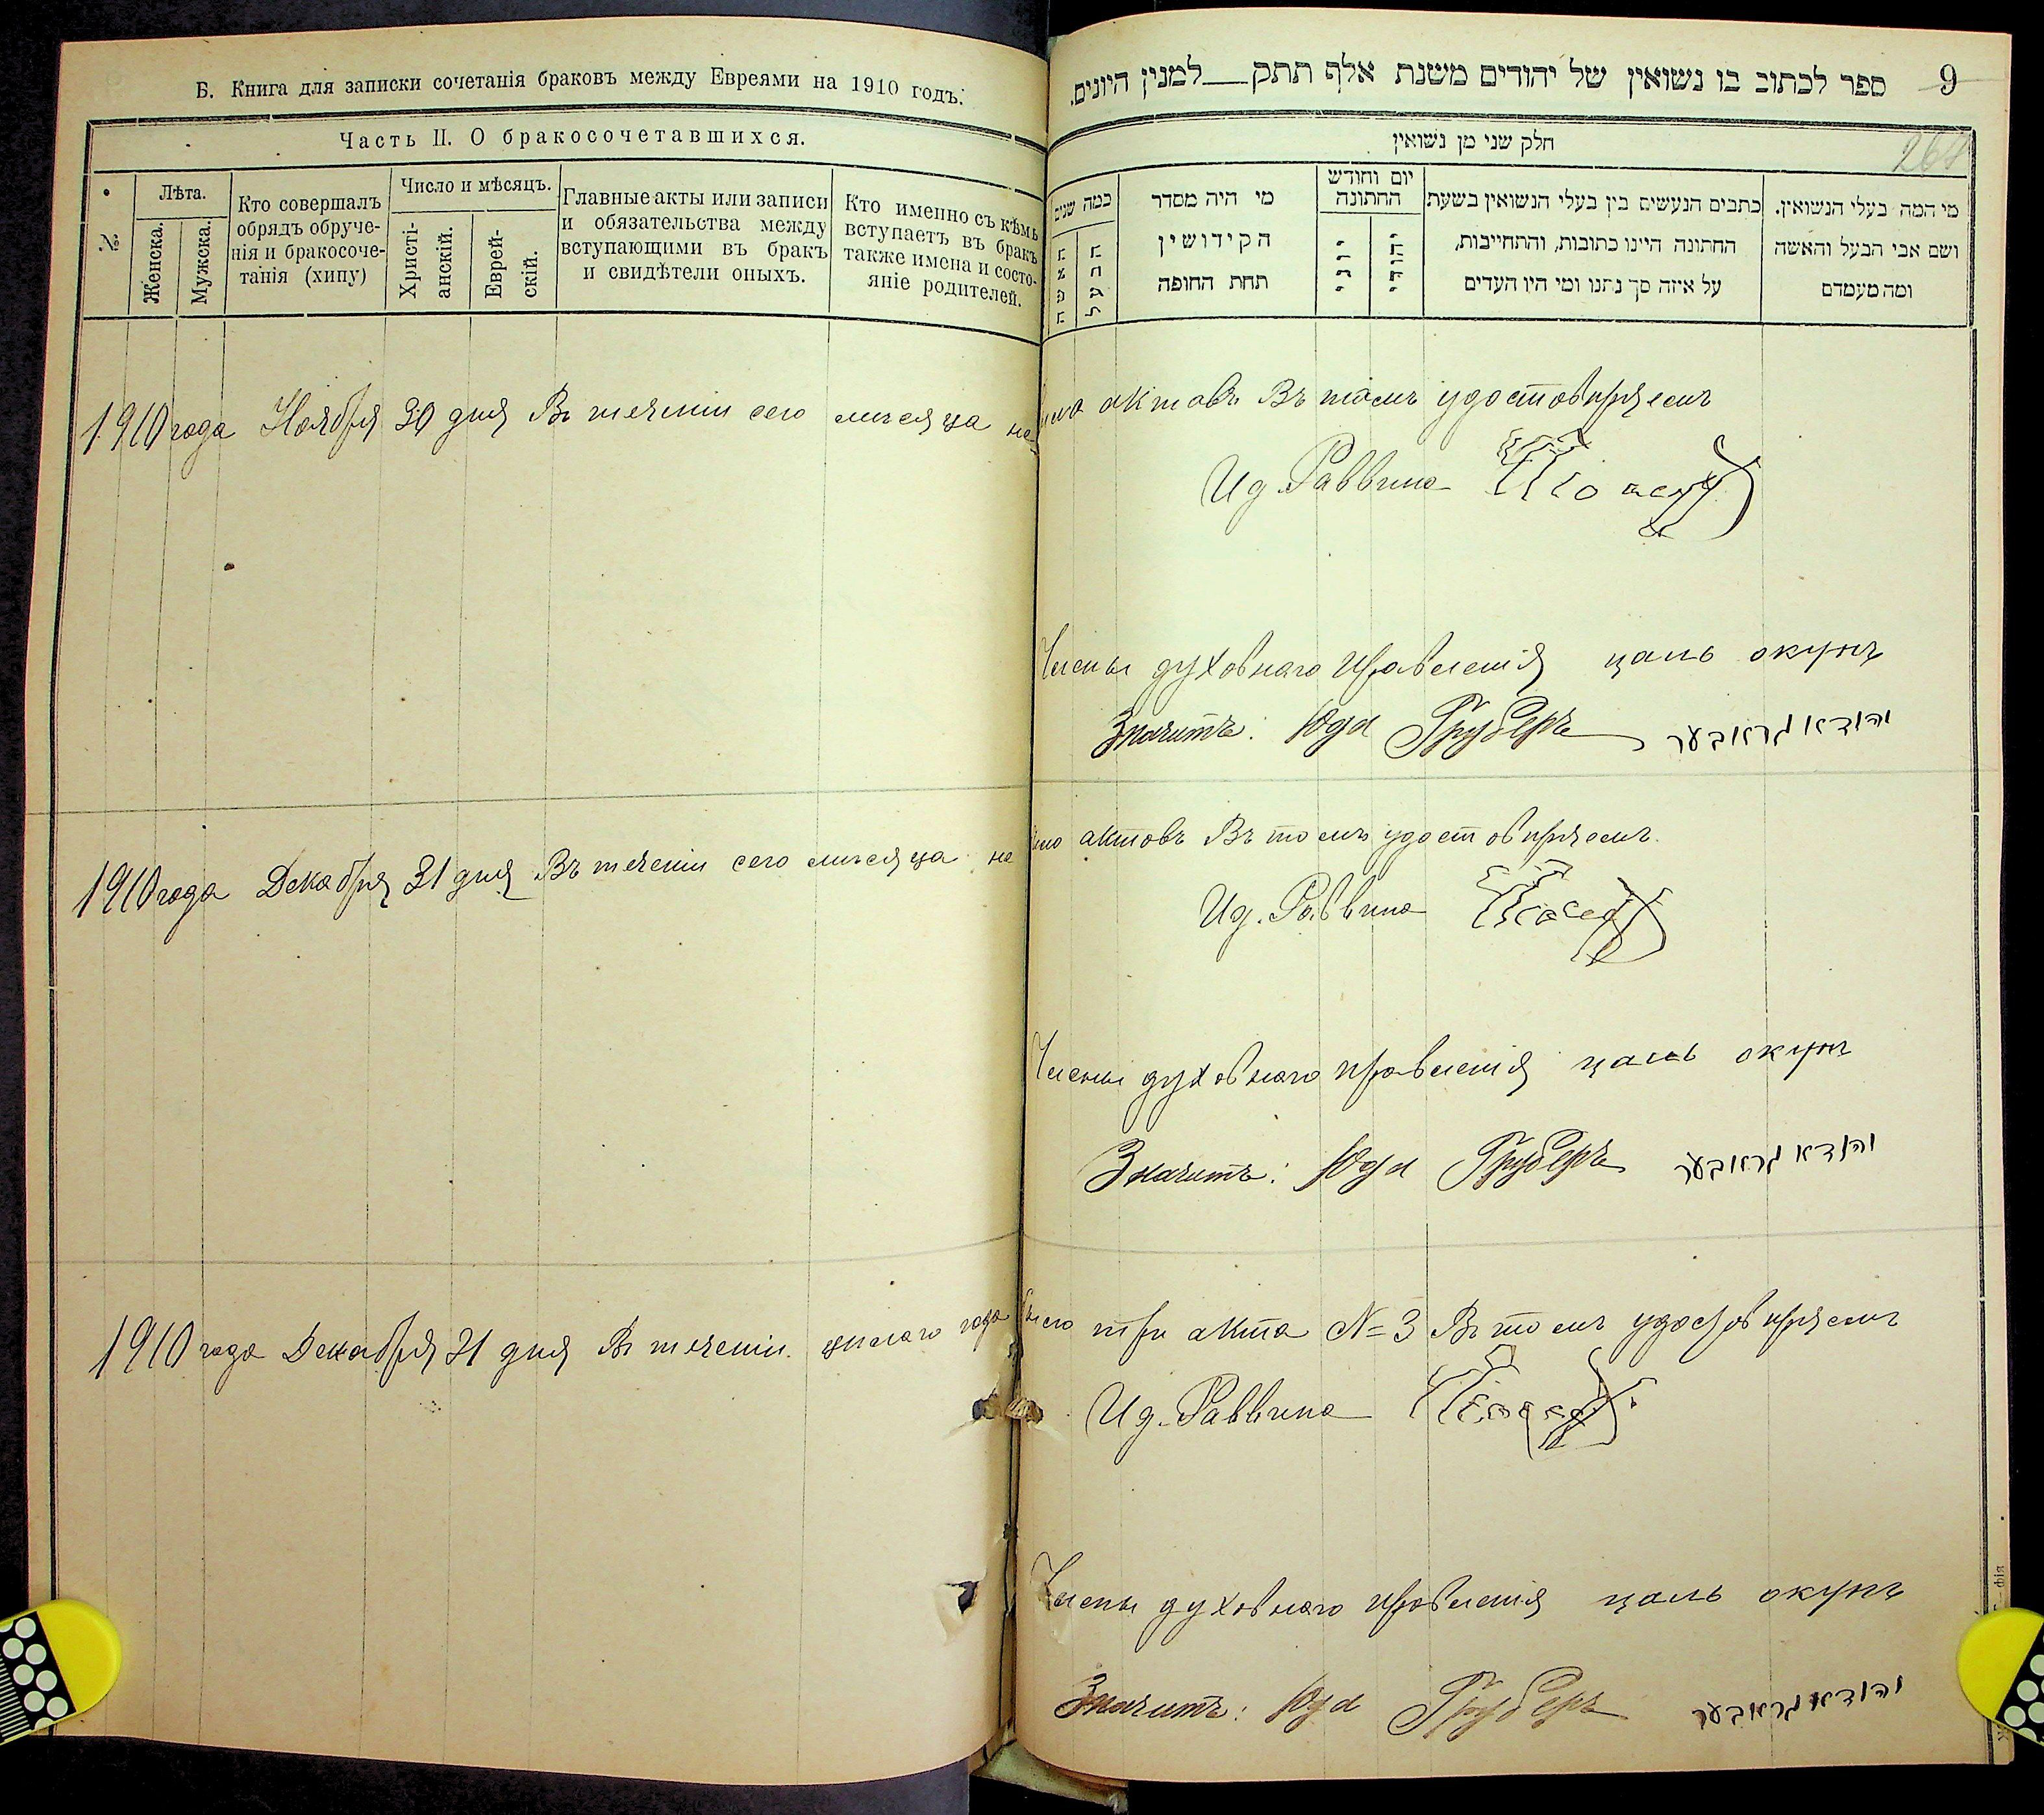 Б. Книга для записки сочетанія браковъ между Евреями на 1910 годъ.
Часть II. О бракосочетавшихся.
№
Лѣта.
Женска.
Мужска.
Кто совершалъ
обрядъ обруче-
нія и бракосоче-
танія (хипу)
Число и мѣсяцъ.
Христі-
анскій.
Еврей-
скій.
Главные акты или записи
и обязательства между
вступающими въ бракъ
и свидѣтели оныхъ.
Кто именно съ кѣмъ
вступаетъ въ бракъ
также имена и состо-
яніе родителей.
ספר לכתוב בו נשואין של יהודים משנת אלף תתק למנין היונים.
9
264
חלק שני מן נשואין
כמה שנים
האשה
הבעל
מי היה מסדר
הקידושין
תחת החופה
יום וחודש
החתונה
יוני
יהודי
כתבים הנעשים בין בעלי הנשואין בשעת
החתונה היינו כתובות, והתחייבות,
על איזה סך נתנו ומי היו העדים
מי המה בעלי הנשואין.
ושם אבי הבעל והאשה
ומה מעמדם
1910 года Ноября 30 дня Въ теченіи сего мѣсяца не было актовъ Въ томъ удостовѣряемъ
Ид. Раввина
Члены духовнаго правленія цаль окунь
Значитъ: Юда Груберъ יהודא גראבער
1910 года Декабря 31 дня Въ теченіи сего мѣсяца не было актовъ Въ томъ удостовѣряемъ.
Ид. Раввина
Члены духовнаго правленія цаль окунь
Значитъ: Юда Груберъ יהודא גראבער
1910 года Декабря 31 дня Въ теченіи цѣлаго года было три акта № 3 Въ томъ удостовѣряемъ
Ид. Раввина
Члены духовнаго правленія цаль окунь
Значитъ: Юда Груберъ יהודא גראבער